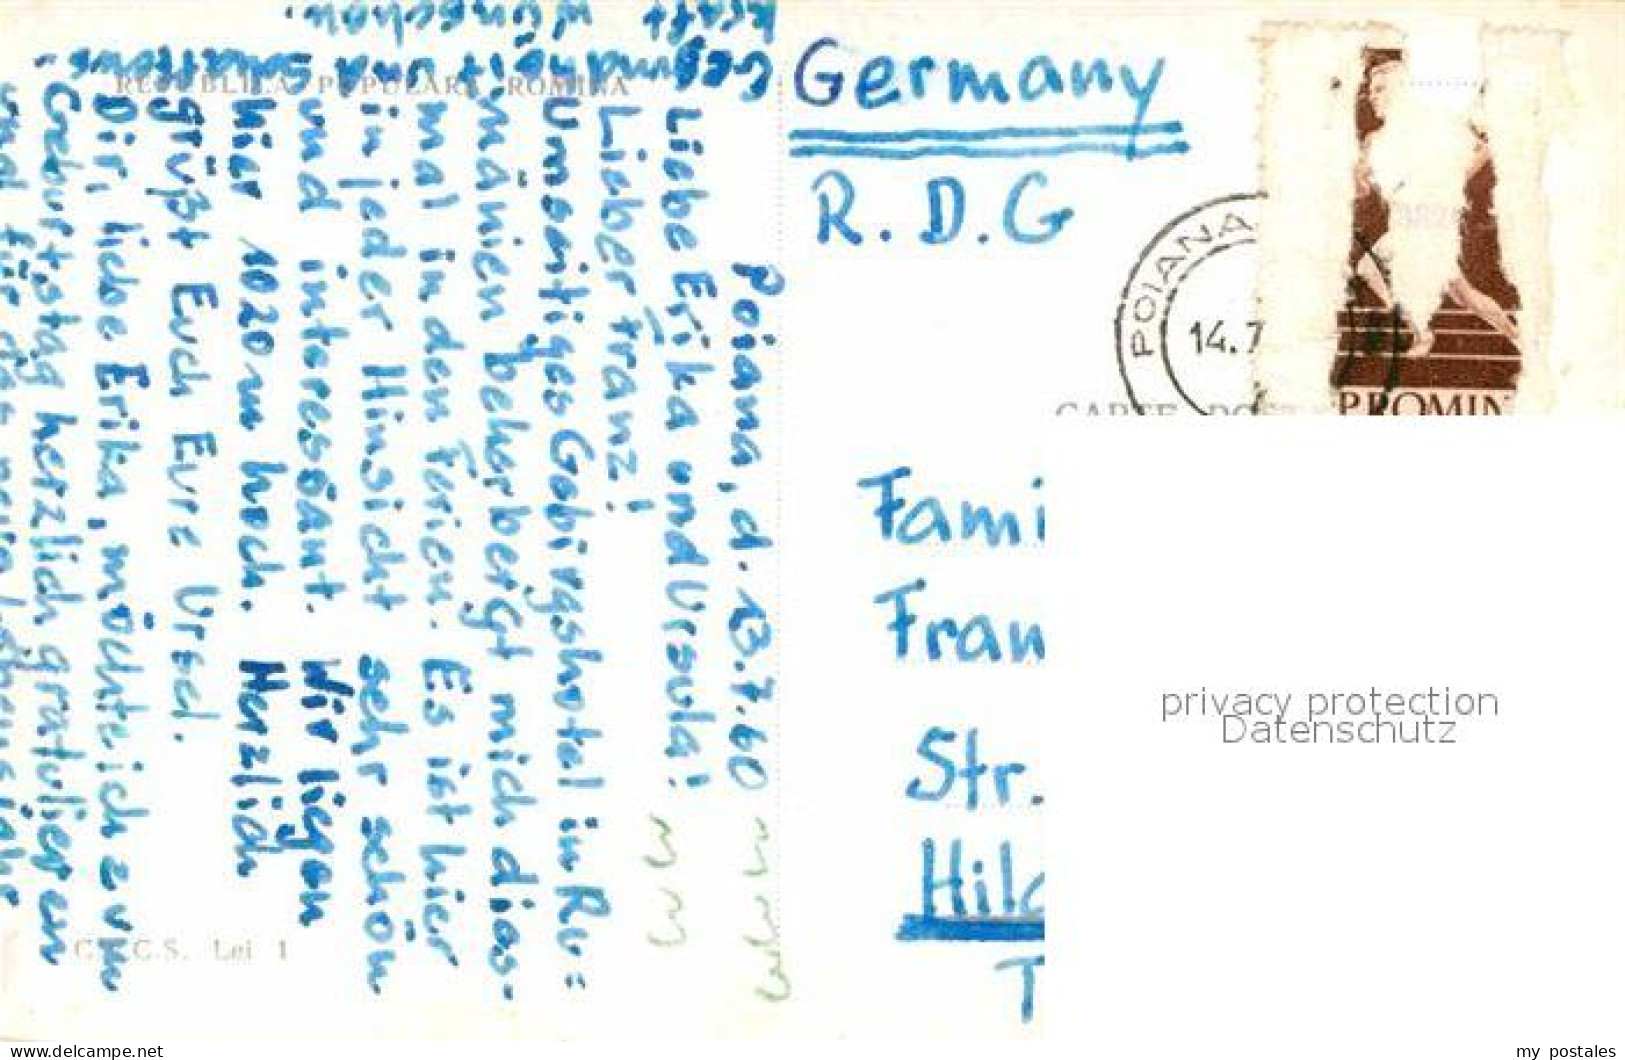 REPUBLICA POPULARĂ ROMÎNĂ
Poiana, d. 13.7.60
Liebe Erika und Ursula!
Lieber Franz!
Umseitiges Gebirgshotel in Ru=
mänien beherbergt mich dies-
mal in den Ferien. Es ist hier
in jeder Hinsicht sehr schön
und interessant. Wir liegen
hier 1020 m hoch. Herzlich
grüßt Euch Eure Ursel.
Dir, liebe Erika, möchte ich zum
Geburtstag herzlich gratulieren
und für das neue Lebensjahr
Gesundheit und Schaffens-
kraft wünschen.
C.P.C.S. Lei 1
Germany
R. D. G
POIANA
14.7
R.P.ROMIN
CARTE POST
Fami
Fran
Str.
Hild
T
privacy protection
Datenschutz
www.delcampe.net
my_postales